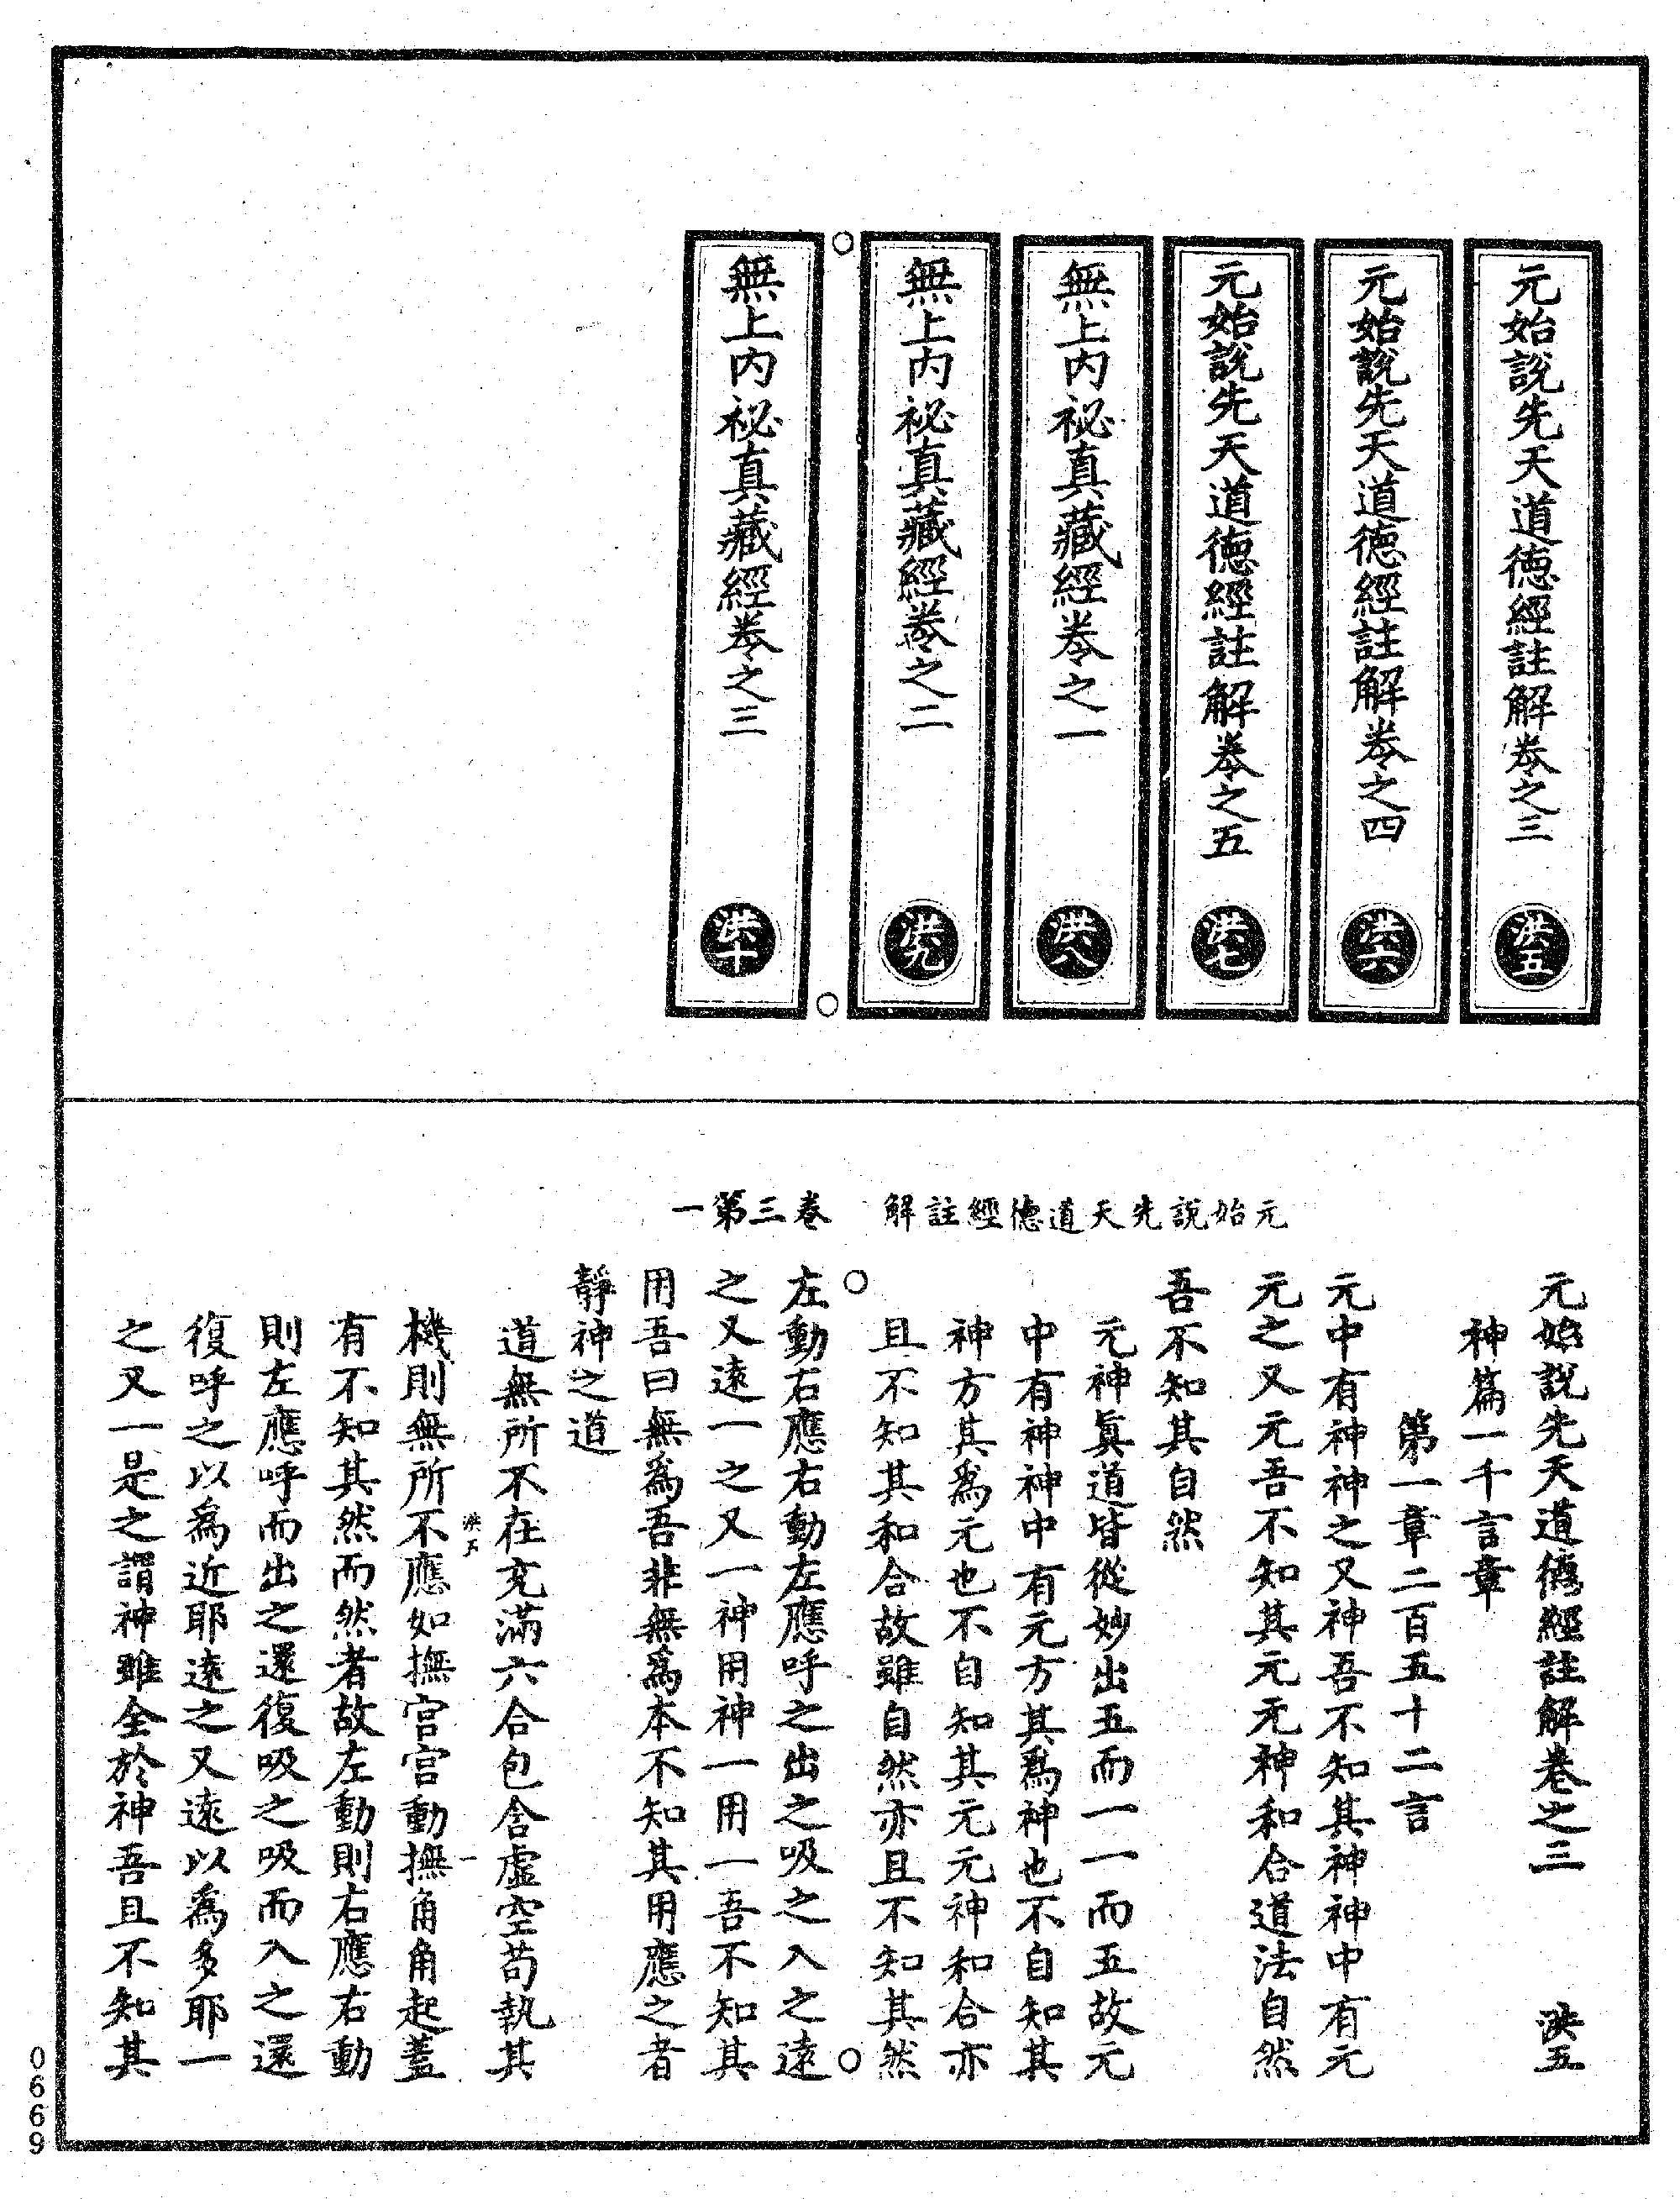 元始說先天道德經註解卷之三
洪五
元始說先天道德經註解卷之四
洪六
元始說先天道德經註解卷之五
洪七
無上內祕真藏經卷之一
洪八
無上內祕真藏經卷之二
洪九
無上內祕真藏經卷之三
洪十
元始說先天道德經註解 卷三第一
元始說先天道德經註解卷之三 洪五
神篇一千言章
第一章二百五十二言
元中有神神之又神吾不知其神神中有元
元之又元吾不知其元元神和合道法自然
吾不知其自然
元神眞道皆從妙出五而一一而五故元
中有神神中有元方其爲神也不自知其
神方其爲元也不自知其元元神和合亦
且不知其和合故雖自然亦且不知其然
左動右應右動左應呼之出之吸之入之遠
之又遠一之又一神用神一用一吾不知其
用吾曰無爲吾非無爲本不知其用應之者
靜神之道
道無所不在充滿六合包含虛空苟執其
洪五 一
機則無所不應如撫宮宮動撫角角起蓋
有不知其然而然者故左動則右應右動
則左應呼而出之還復吸之吸而入之還
復呼之以爲近耶遠之又遠以爲多耶一
之又一是之謂神雖全於神吾且不知其
0669